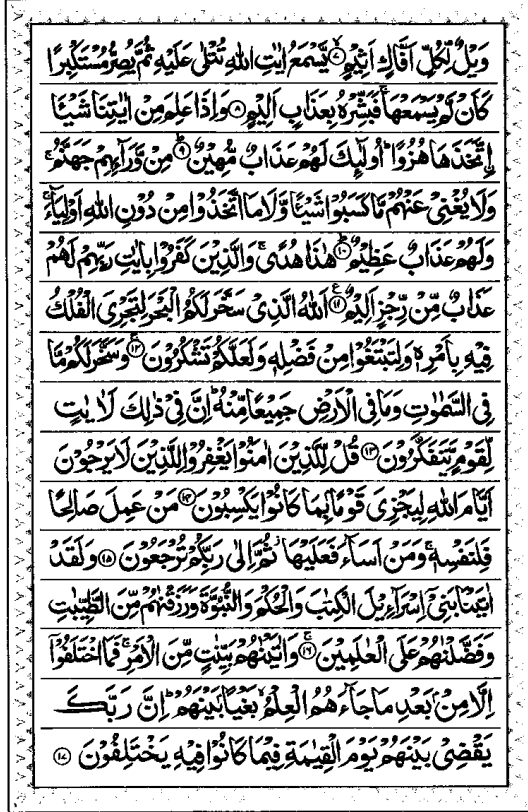 وَيْلٌ لِّكُلِّ اَفَّاكٍ اَثِيْمٍ ۙ‏﴿۷﴾ يَّسْمَعُ اٰيٰتِ اللّٰهِ تُتْلٰى عَلَيْهِ ثُمَّ يُصِرُّ مُسْتَكْبِرًا
كَاَنْ لَّمْ يَسْمَعْهَا ۚ فَبَشِّرْهُ بِعَذَابٍ اَلِيْمٍ ﴿۸﴾ وَاِذَا عَلِمَ مِنْ اٰيٰتِنَا شَيْـًٔا
اۨتَّخَذَهَا هُزُوًا ؕ اُولٰٓئِكَ لَهُمْ عَذَابٌ مُّهِيْنٌ ؕ ﴿۹﴾ مِنْ وَّرَآئِهِمْ جَهَنَّمُ ۚ
وَلَا يُغْنِيْ عَنْهُمْ مَّا كَسَبُوْا شَيْـًٔا وَّلَا مَا اتَّخَذُوْا مِنْ دُوْنِ اللّٰهِ اَوْلِيَآءَ ۚ
وَلَهُمْ عَذَابٌ عَظِيْمٌ ؕ ﴿۱۰﴾ هٰذَا هُدًى ۚ وَالَّذِيْنَ كَفَرُوْا بِاٰيٰتِ رَبِّهِمْ لَهُمْ
عَذَابٌ مِّنْ رِّجْزٍ اَلِيْمٌ ﴿۱۱﴾ ع اَللّٰهُ الَّذِيْ سَخَّرَ لَكُمُ الْبَحْرَ لِتَجْرِيَ الْفُلْكُ
فِيْهِ بِاَمْرِهٖ وَلِتَبْتَغُوْا مِنْ فَضْلِهٖ وَلَعَلَّكُمْ تَشْكُرُوْنَ ۚ ﴿۱۲﴾ وَسَخَّرَ لَكُمْ مَّا
فِي السَّمٰوٰتِ وَمَا فِي الْاَرْضِ جَمِيْعًا مِّنْهُ ؕ اِنَّ فِيْ ذٰلِكَ لَاٰيٰتٍ
لِّقَوْمٍ يَّتَفَكَّرُوْنَ ﴿۱۳﴾ قُلْ لِّلَّذِيْنَ اٰمَنُوْا يَغْفِرُوْا لِلَّذِيْنَ لَا يَرْجُوْنَ
اَيَّامَ اللّٰهِ لِيَجْزِيَ قَوْمًاۢ بِمَا كَانُوْا يَكْسِبُوْنَ ﴿۱۴﴾ مَنْ عَمِلَ صَالِحًا
فَلِنَفْسِهٖ ۚ وَمَنْ اَسَآءَ فَعَلَيْهَا ۫ ثُمَّ اِلٰى رَبِّكُمْ تُرْجَعُوْنَ ﴿۱۵﴾ وَلَقَدْ
اٰتَيْنَا بَنِيْٓ اِسْرَآءِيْلَ الْكِتٰبَ وَالْحُكْمَ وَالنُّبُوَّةَ وَرَزَقْنٰهُمْ مِّنَ الطَّيِّبٰتِ
وَفَضَّلْنٰهُمْ عَلَى الْعٰلَمِيْنَ ۚ ﴿۱۶﴾ وَاٰتَيْنٰهُمْ بَيِّنٰتٍ مِّنَ الْاَمْرِ ۚ فَمَا اخْتَلَفُوْٓا
اِلَّا مِنْۢ بَعْدِ مَا جَآءَهُمُ الْعِلْمُ ۙ بَغْيًاۢ بَيْنَهُمْ ؕ اِنَّ رَبَّكَ
يَقْضِيْ بَيْنَهُمْ يَوْمَ الْقِيٰمَةِ فِيْمَا كَانُوْا فِيْهِ يَخْتَلِفُوْنَ ﴿۱۷﴾